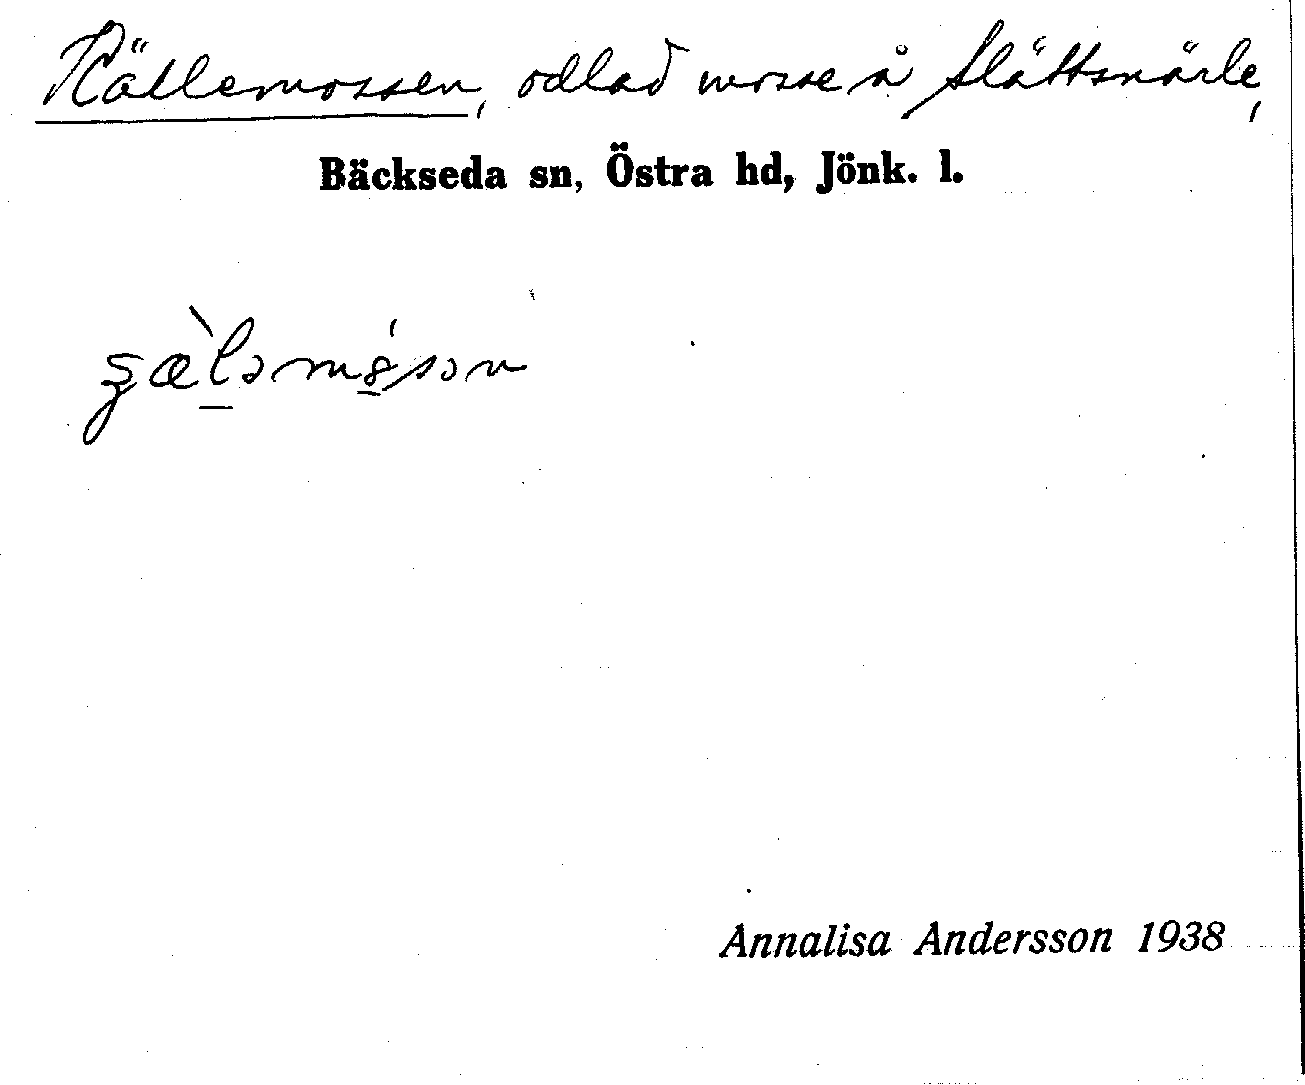 Rällemossen, odlad mosse å Slättsnärle,
Bäckseda sn, Östra hd, Jönk. l.
Annalisa Andersson 1938